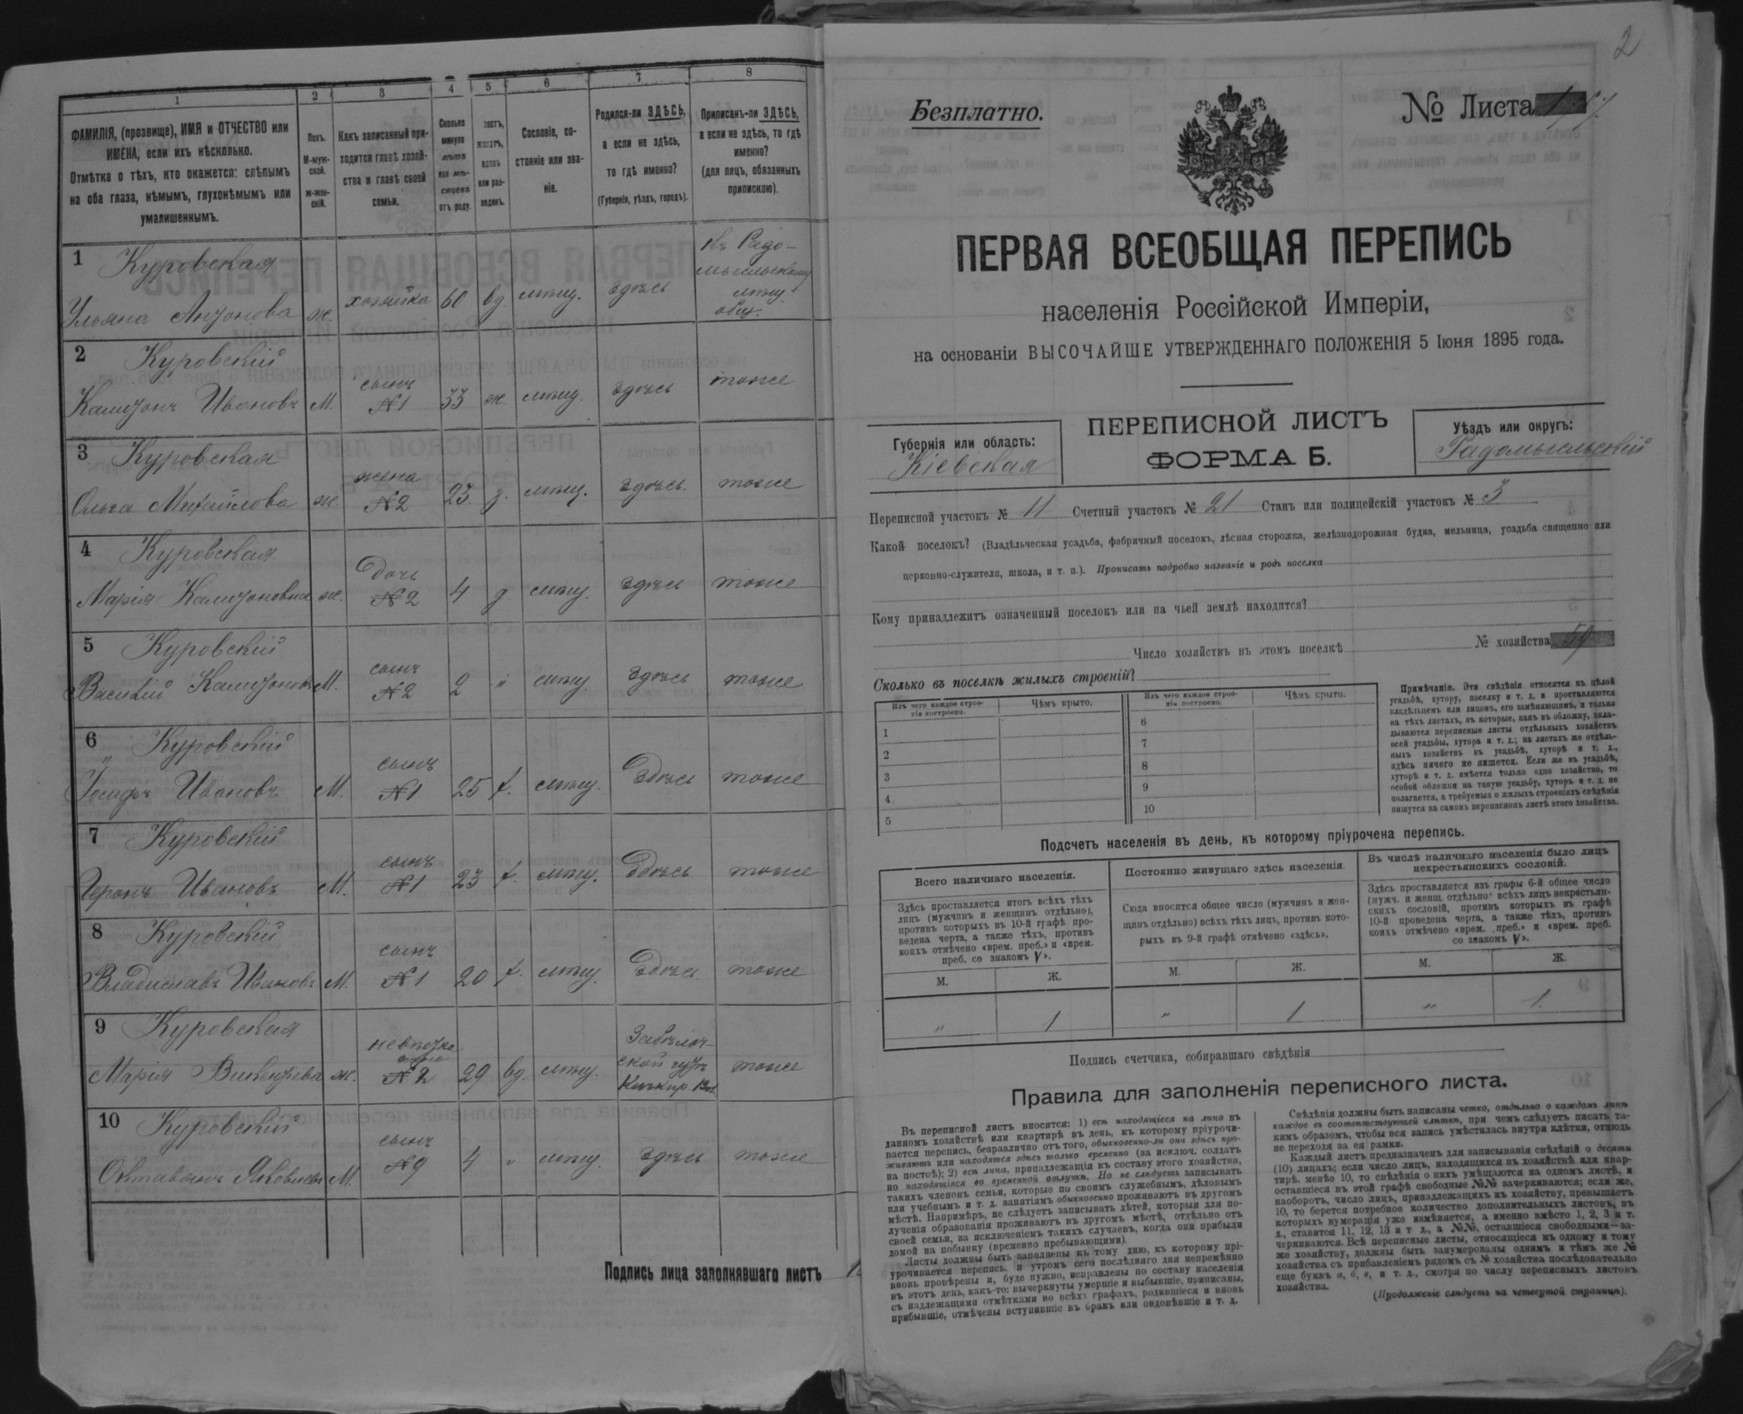 1 2 3 4 5 6 7 8
ФАМИЛІЯ, (прозвище), ИМЯ и ОТЧЕСТВО или
ИМЕНА, если ихъ нѣсколько.
Отмѣтка о тѣхъ, кто окажется: слѣпымъ
на оба глаза, нѣмымъ, глухонѣмымъ или
умалишеннымъ.
Полъ.
М-муж-
ской.
Ж-жен-
скій.
Какъ записанный при-
ходится главѣ хозяй-
ства и главѣ своей
семьи.
Сколько
минуло
лѣтъ
или мѣ-
сяцевъ
отъ роду.
женатъ,
вдовъ
или раз-
веденъ.
Сословіе, со-
стояніе или зва-
ніе.
Родился-ли ЗДѢСЬ,
а если не здѣсь,
то гдѣ именно?
(Губернія, уѣздъ, городъ).
Приписанъ-ли ЗДѢСЬ,
а если не здѣсь, то гдѣ
именно?
(для лицъ, обязанныхъ
припискою).
1 Куровская
Ульяна Антонова ж. хозяйка 60 вд мѣщ. здѣсь
мѣщ.
общ.
2 Куровскій
Иванов М. сынъ №1 33 ж. мѣщ. здѣсь тоже
3 Куровская
Ольга Михайлова ж. жена №2 23. з. мѣщ. здѣсь тоже
4 Куровская
Марія ж. Дочь №2 4 д мѣщ. здѣсь тоже
5 Куровскій
Василій М. сынъ №2 2 " мѣщ здѣсь тоже
6 Куровскій
Іосифъ Ивановъ М. сынъ №1 25 х. мѣщ. здѣсь тоже
7 Куровскій
Ивановъ М. сынъ №1 23 х. мѣщ. здѣсь тоже
8 Куровскій
Владиславъ Ивановъ М. сынъ №1 20 х. мѣщ. здѣсь тоже
9 Куровская
Марія ж. невѣстка №2 29 вд. мѣщ. тоже
10 Куровскій
М. сынъ №9 4 " мѣщ. здѣсь тоже
Подпись лица заполнявшаго листъ
2
Безплатно.
№ Листа
ПЕРВАЯ ВСЕОБЩАЯ ПЕРЕПИСЬ
населенія Россійской Имперіи,
на основаніи ВЫСОЧАЙШЕ УТВЕРЖДЕННАГО ПОЛОЖЕНІЯ 5 Іюня 1895 года.
Губернія или область:
Кіевская
ПЕРЕПИСНОЙ ЛИСТЪ
ФОРМА Б.
Уѣздъ или округъ:
Радомысльскій
Переписной участокъ № 11 Счетный участокъ № 21 Станъ или полицейскій участокъ № 3
Какой поселокъ? (Владѣльческая усадьба, фабричный поселокъ, лѣсная сторожка, желѣзнодорожная будка, мельница, усадьба священно или
церковно-служителя, школа, и т. п.). Прописать подробно названіе и родъ поселка
Кому принадлежитъ означенный поселокъ или на чьей землѣ находится?
Число хозяйствъ въ этомъ поселкѣ № хозяйства
Сколько въ поселкѣ жилыхъ строеній?
Изъ чего каждое строе-
ніе построено.
Чѣмъ крыто.
Изъ чего каждое строе-
ніе построено.
Чѣмъ крыто.
1 6
2 7
3 8
4 9
5 10
Примѣчаніе. Эти свѣдѣнія относятся къ цѣлой
усадьбѣ, хутору, поселку и т. д. и проставляются
владѣльцемъ или лицомъ, его замѣняющимъ, и только
на тѣхъ листахъ, въ которые, какъ въ обложку, вкла-
дываются переписные листы отдѣльныхъ хозяйствъ
всей усадьбы, хутора и т. д.; на листахъ же отдѣль-
ныхъ хозяйствъ въ усадьбѣ, хуторѣ и т. д.,
здѣсь ничего не пишется. Если же въ усадьбѣ,
хуторѣ и т. д. имѣется только одно хозяйство, то
особой обложки на такую усадьбу, хуторъ и т. д. не
полагается, а требуемыя о жилыхъ строеніяхъ свѣдѣнія
пишутся на самомъ переписномъ листѣ этого хозяйства.
Подсчетъ населенія въ день, къ которому пріурочена перепись.
Всего наличнаго населенія.
Здѣсь проставляется итогъ всѣхъ тѣхъ
лицъ (мужчинъ и женщинъ отдѣльно),
противъ которыхъ въ 10-й графѣ про-
ведена черта, а также тѣхъ, противъ
коихъ отмѣчено «врем. преб.» и «врем.
преб. со знакомъ V».
Постоянно живущаго здѣсь населенія.
Сюда вносится общее число (мужчинъ и жен-
щинъ отдѣльно) всѣхъ тѣхъ лицъ, противъ кото-
рыхъ въ 9-й графѣ отмѣчено «здѣсь».
Въ числѣ наличнаго населенія было лицъ
некрестьянскихъ сословій.
Здѣсь проставляется изъ графы 6-й общее число
(мужч. и женщ. отдѣльно) всѣхъ лицъ некрестьян-
скихъ сословій, противъ которыхъ въ графѣ
10-й проведена черта, а также тѣхъ, противъ
коихъ отмѣчено «врем. преб.» и «врем. преб.
со знакомъ V».
М. Ж. М. Ж. М. Ж.
" 1 " 1 " 1
Подпись счетчика, собиравшаго свѣдѣнія
Правила для заполненія переписного листа.
Въ переписной листъ вносятся: 1) всѣ находящіеся на лицо въ
данномъ хозяйствѣ или квартирѣ въ день, къ которому пріурочи-
вается перепись, безразлично отъ того, обыкновенно-ли они здѣсь про-
живаютъ или находятся здѣсь только временно (за исключ. солдатъ
на постоѣ); 2) всѣ лица, принадлежащія къ составу этого хозяйства,
но находящіеся во временной отлучкѣ. Но не слѣдуетъ записывать
такихъ членовъ семьи, которые по своимъ служебнымъ, дѣловымъ
или учебнымъ и т. д. занятіямъ обыкновенно проживаютъ въ другомъ
мѣстѣ. Напримѣръ, не слѣдуетъ записывать дѣтей, которыя для по-
лученія образованія проживаютъ въ другомъ мѣстѣ, отдѣльно отъ
своей семьи, за исключеніемъ такихъ случаевъ, когда они прибыли
домой на побывку (временно пребывающими).
Листы должны быть заполнены къ тому дню, къ которому прі-
урочивается перепись, и утромъ сего послѣдняго дня непремѣнно
вновь провѣрены и, буде нужно, исправлены по составу населенія
въ этотъ день, какъ-то: вычеркнуты умершіе и выбывшіе, приписаны,
съ надлежащими отмѣтками во всѣхъ графахъ, родившіеся и вновь
прибывшіе, отмѣчены вступившіе въ бракъ или овдовѣвшіе и т. д.
Свѣдѣнія должны быть написаны четко, отдѣльно о каждомъ лицѣ
каждое въ соотвѣтствующей клѣткѣ, при чемъ слѣдуетъ писать та-
кимъ образомъ, чтобы вся запись умѣстилась внутри клѣтки, отнюдь
не переходя за ея рамки.
Каждый листъ предназначенъ для записыванія свѣдѣній о десяти
(10) лицахъ; если число лицъ, находящихся въ хозяйствѣ или квар-
тирѣ, менѣе 10, то свѣдѣнія о нихъ умѣщаются на одномъ листѣ, и
оставшіеся въ этой графѣ свободные №№ зачеркиваются; если же,
наоборотъ, число лицъ, принадлежащихъ къ хозяйству, превышаетъ
10, то берется потребное количество дополнительныхъ листовъ, въ
которыхъ нумерація уже измѣняется, а именно вмѣсто 1, 2, 3 и т.
д., ставится 11, 12, 13 и т. д., а №№, оставшіеся свободными — за-
черкиваются. Всѣ переписные листы, относящіеся къ одному и тому
же хозяйству, должны быть занумерованы однимъ и тѣмъ же №
хозяйства съ прибавленіемъ рядомъ съ № хозяйства послѣдовательно
еще буквъ а, б, в, и т. д., смотря по числу переписныхъ листовъ
хозяйства.
(Продолженіе слѣдуетъ на четвертой страницѣ).